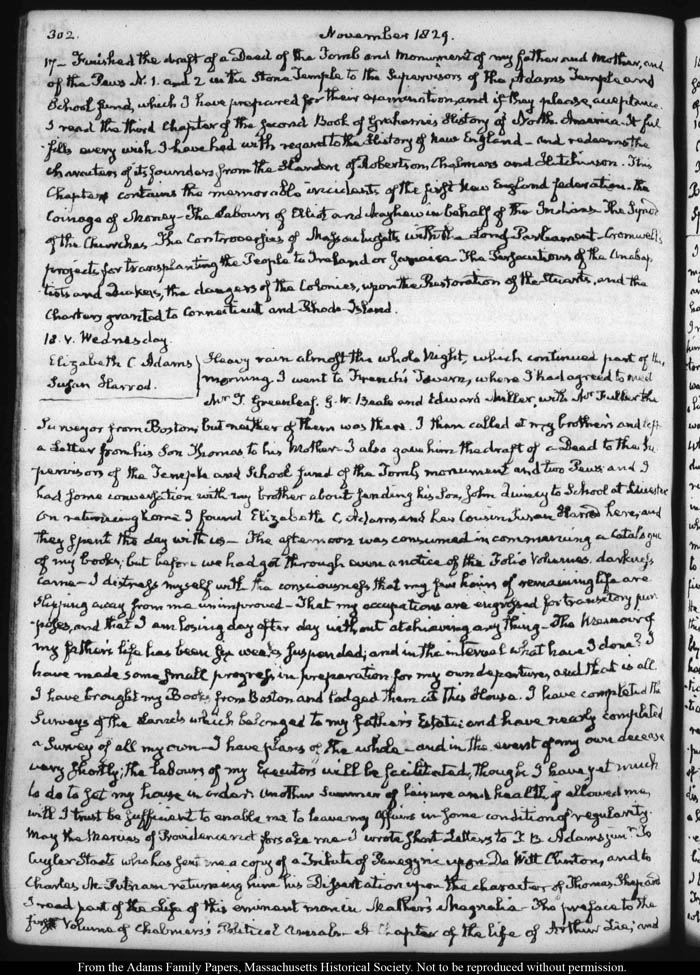 302. November 1829.
17 - Finished the draft of a Deed of the Tomb and Monument of my father and Mother, and
of the Pews N. 1. and 2 in the Stone Temple to the Supervisors of the Adams Temple and
School fund, which I have prepared for their examination and if they please, acceptance.
I read the third Chapter of the second Book of Grahame's History of North America. It ful
fills every wish I have had with regard to the History of New England - and redeems the
characters of its founders from the slanders of Robertson, Chalmers and Hutchinson. This
Chapter contains the memorable incidents of the first New England federation. the
Coinage of Money - The labours of Elliot and Mayhew in behalf of the Indians. The Synod
of the Churches. The Controversies of Massachusetts with the Long Parliament - Cromwell's
projects for transplanting the People to Ireland or Jamaica. The Persecutions of the Anabap
tists and Quakers, the dangers of the Colonies, upon the Restoration of the Stuarts, and the
Charters granted to Connecticut and Rhode-Island.
18. V. Wednesday.
Elizabeth C Adams
Susan Harrod.
Heavy rain almost the whole Night, which continued part of the
morning. I went to French's Tavern, where I had agreed to meet
Mr T. Greenleaf, G. W. Beale and Edward Miller, with Mr Fuller the
Surveyor from Boston, but neither of them was there. I then called at my brother's and left
a Letter from his Son Thomas to his Mother - I also gave him the draft of a Deed to the Su
pervisors of the Temple and School fund of the Tomb, monument and two Pews and I
had some conversation with my brother about sending his Son, John Quincy to School at
On returning home I found Elizabeth C. Adams and her Cousin Susan Harrod here; and
they spent the day with us - The afternoon was consumed in commencing a Catalogue
of my books; but before we had got through even a notice of the Folio Volumes, darkness
came - I distress myself with the consciousness that my few hours of remaining life are
slipping away from me unimproved - That my occupations are engrossed for transitory pur
poses, and that I am losing day after day without atchieving any thing - The Memoir of
my father's life has been six weeks suspended; and in the interval what have I done? I
have made some small progress in preparation for my own departure, and that is all.
I have brought my Books from Boston and lodged them at this House. I have completed the
Surveys of the Lands which belonged to my father's Estate; and have nearly completed
a Survey of all my own - I have plans of the whole - and in the event of my own decease
very shortly; the labours of my Executors will be facilitated, though I have yet much
to do to set my house in order. Another Summer of leisure and health, if allowed me,
will I trust be sufficient to enable me to leave my affairs in some condition of regularity.
May the Mercies of Providence not forsake me - I wrote short Letters to J. B. Adams junr. To
Cuyler Staats who has sent me a copy of a Tribute of Panegyric upon De Witt Clinton, and to
Charles M. Putnam returning him his Dissertation upon the character of Thomas Shepard
I read part of the Life of this eminent man in Mather's Magnalia - The preface to the
first Volume of Chalmers's Political Annals - A Chapter of the life of Arthur Lee; and
From the Adams Family Papers, Massachusetts Historical Society. Not to be reproduced without permission.